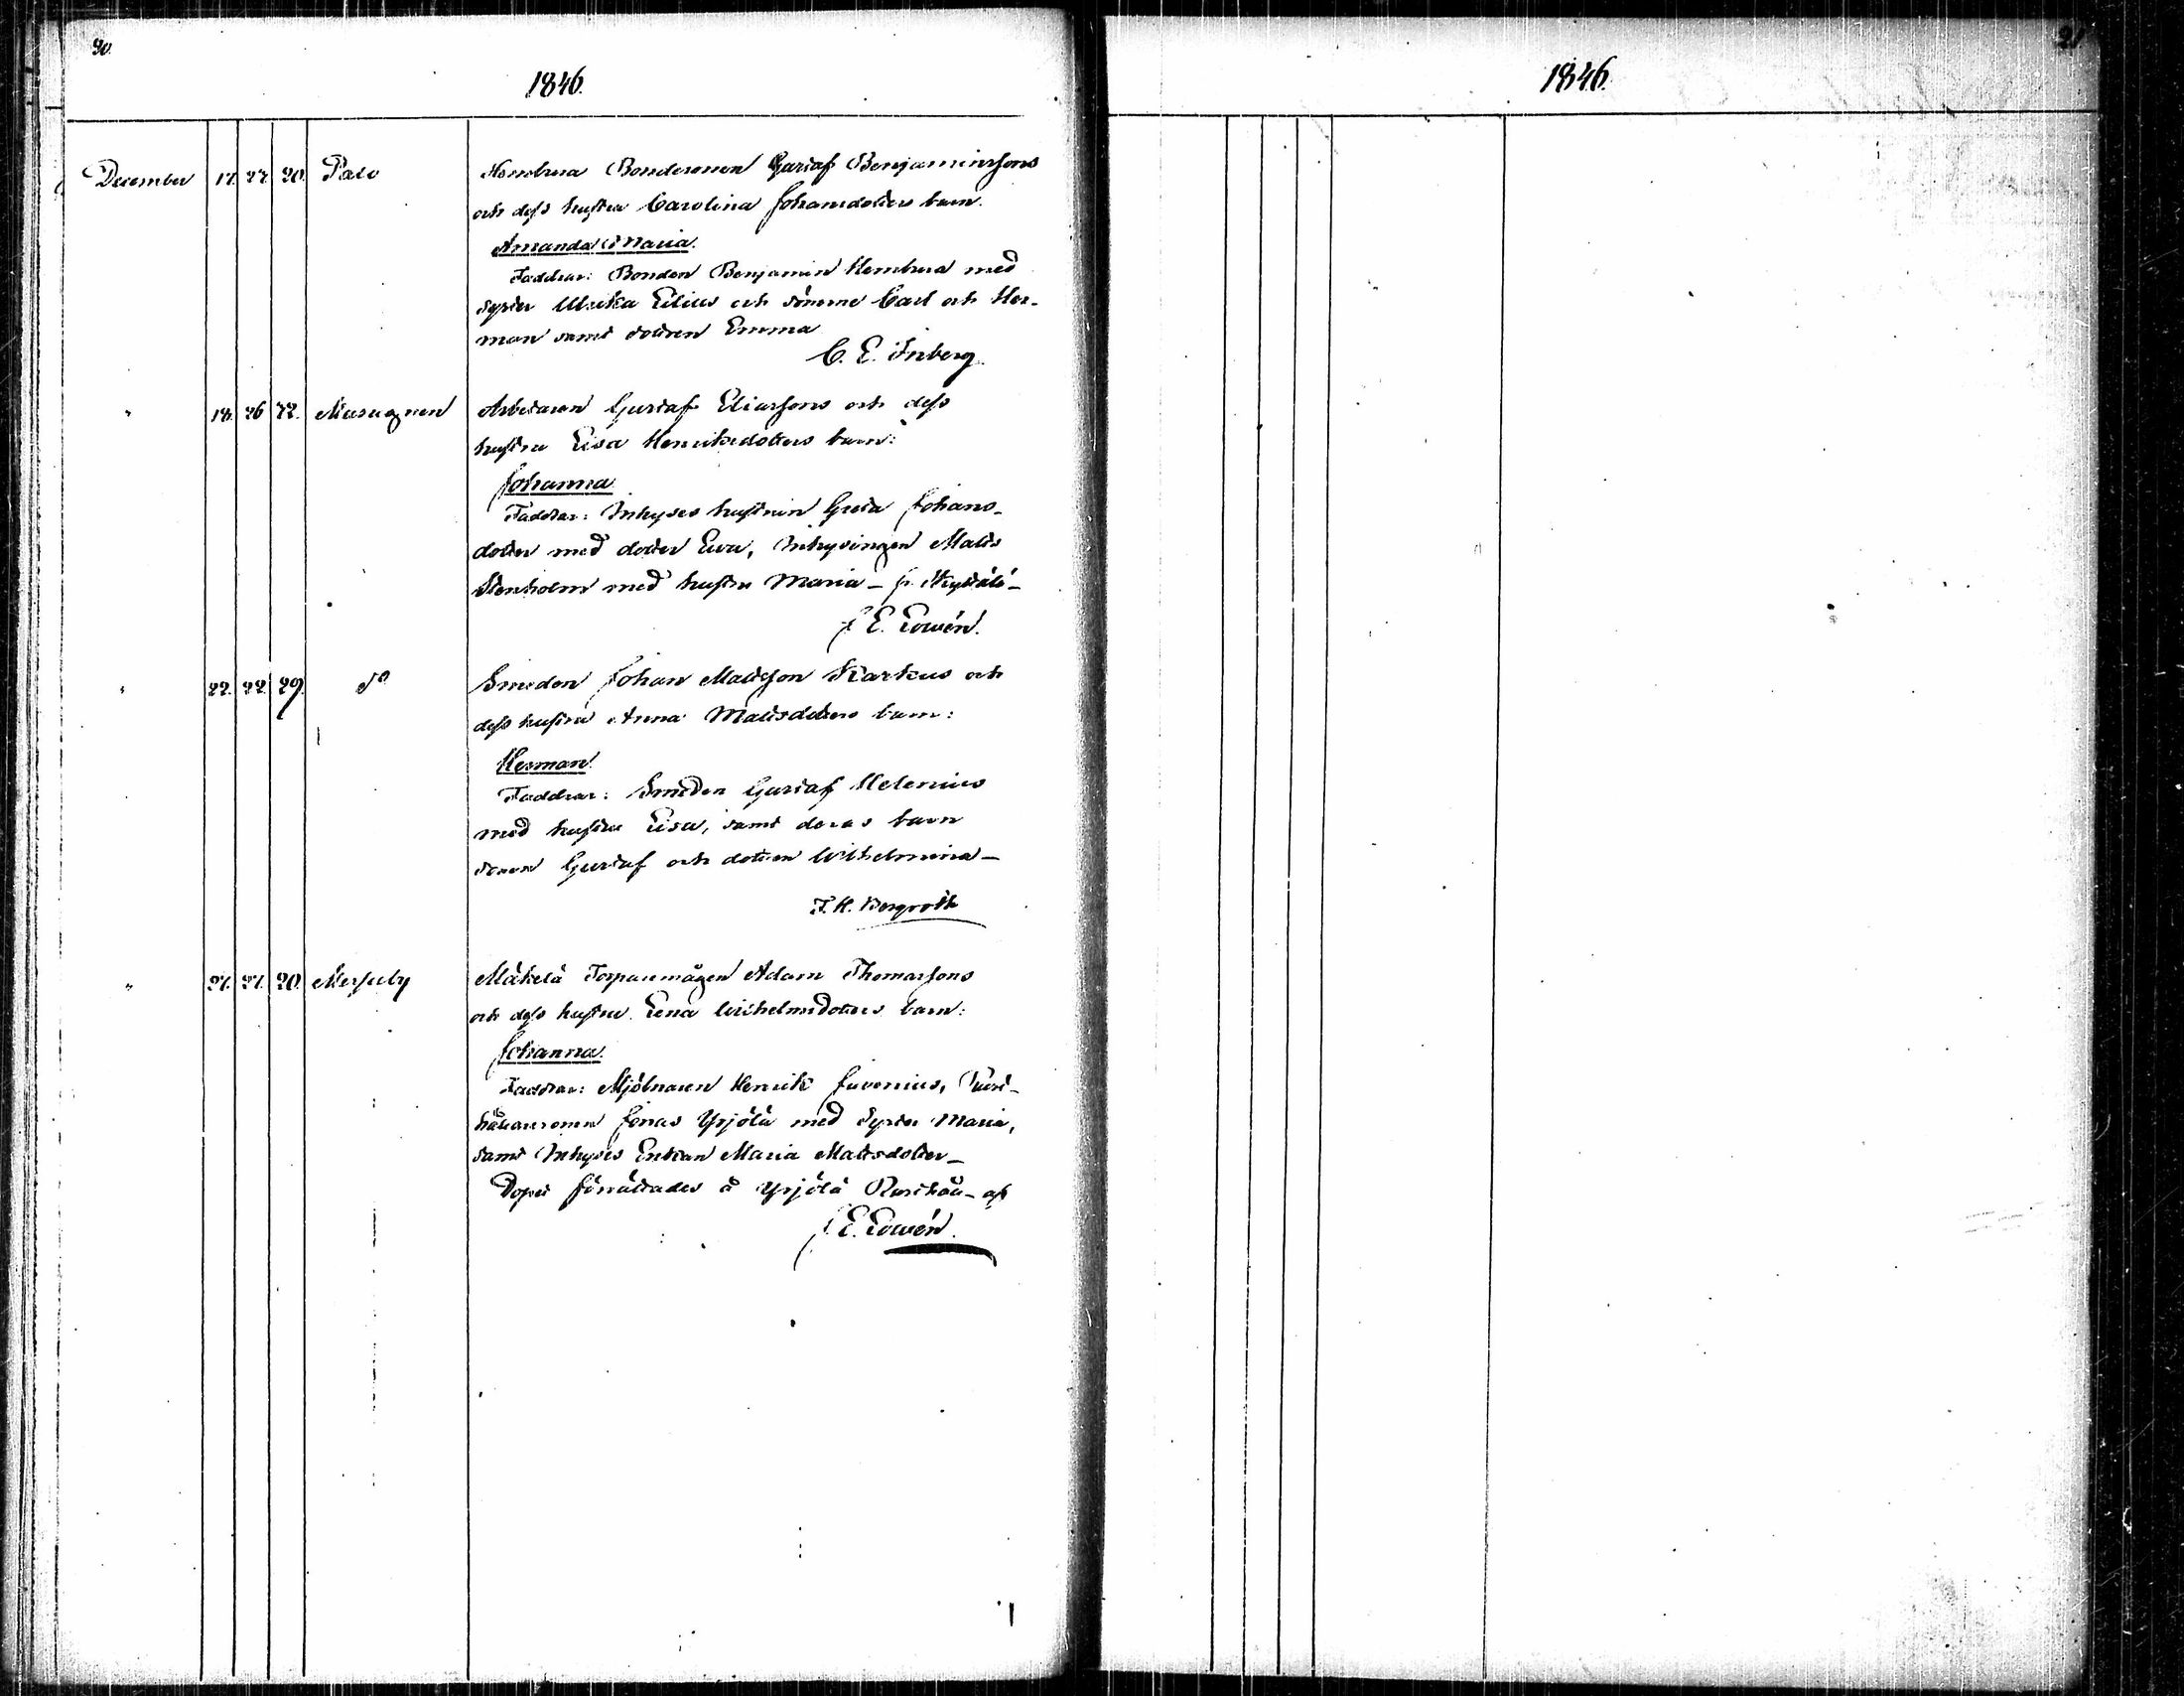 20.
1846.
December 17. 27. 20. Palo Hembura Bondesonen Gustaf Benjaminssons
och dess hustru Carolina Johansdotters barn.
Amanda Maria.
Faddrar: Bonden Benjamin Hembura med
Syster Ulrika Lilius och sönerne Carl och Her-
man samt dottren Emma
C. E. Inberg.
" 18. 26 22. Masugnen Arbetaren Gustaf Eliassons och dess
hustru Lisa Henriksdotters barn:
Johanna.
Faddrar: Inhyses hustrun Greta Johans-
dotter med dotter Eva, Inhysingen Matts
Stenholm med hustru Maria –
J. E. Lowén.
" 22. 22. 29. do Smeden Johan Mattsson Karkus och
dess hustru Anna Mattsdotters barn:
Herman.
Faddrar: Smeden Gustaf Helenius
med hustru Lisa, samt deras barn
sonen Gustaf och dottren Wilhelmina –
F. H. Bergroth
" 27. 27. 20. Merjuby Mäkelä Torparemågen Adam Thomassons
och dess hustru Lena Wilhelmsdotters barn:
Johanna.
Faddrar: Mjölnaren Henrik Juvenius,
Jonas Yrjölä med Syster Maria,
samt Inhyses Enkan Maria Mattsdotter –
Dopet förrättades å Yrjölä – af
J. E. Lowén.
1846.
21